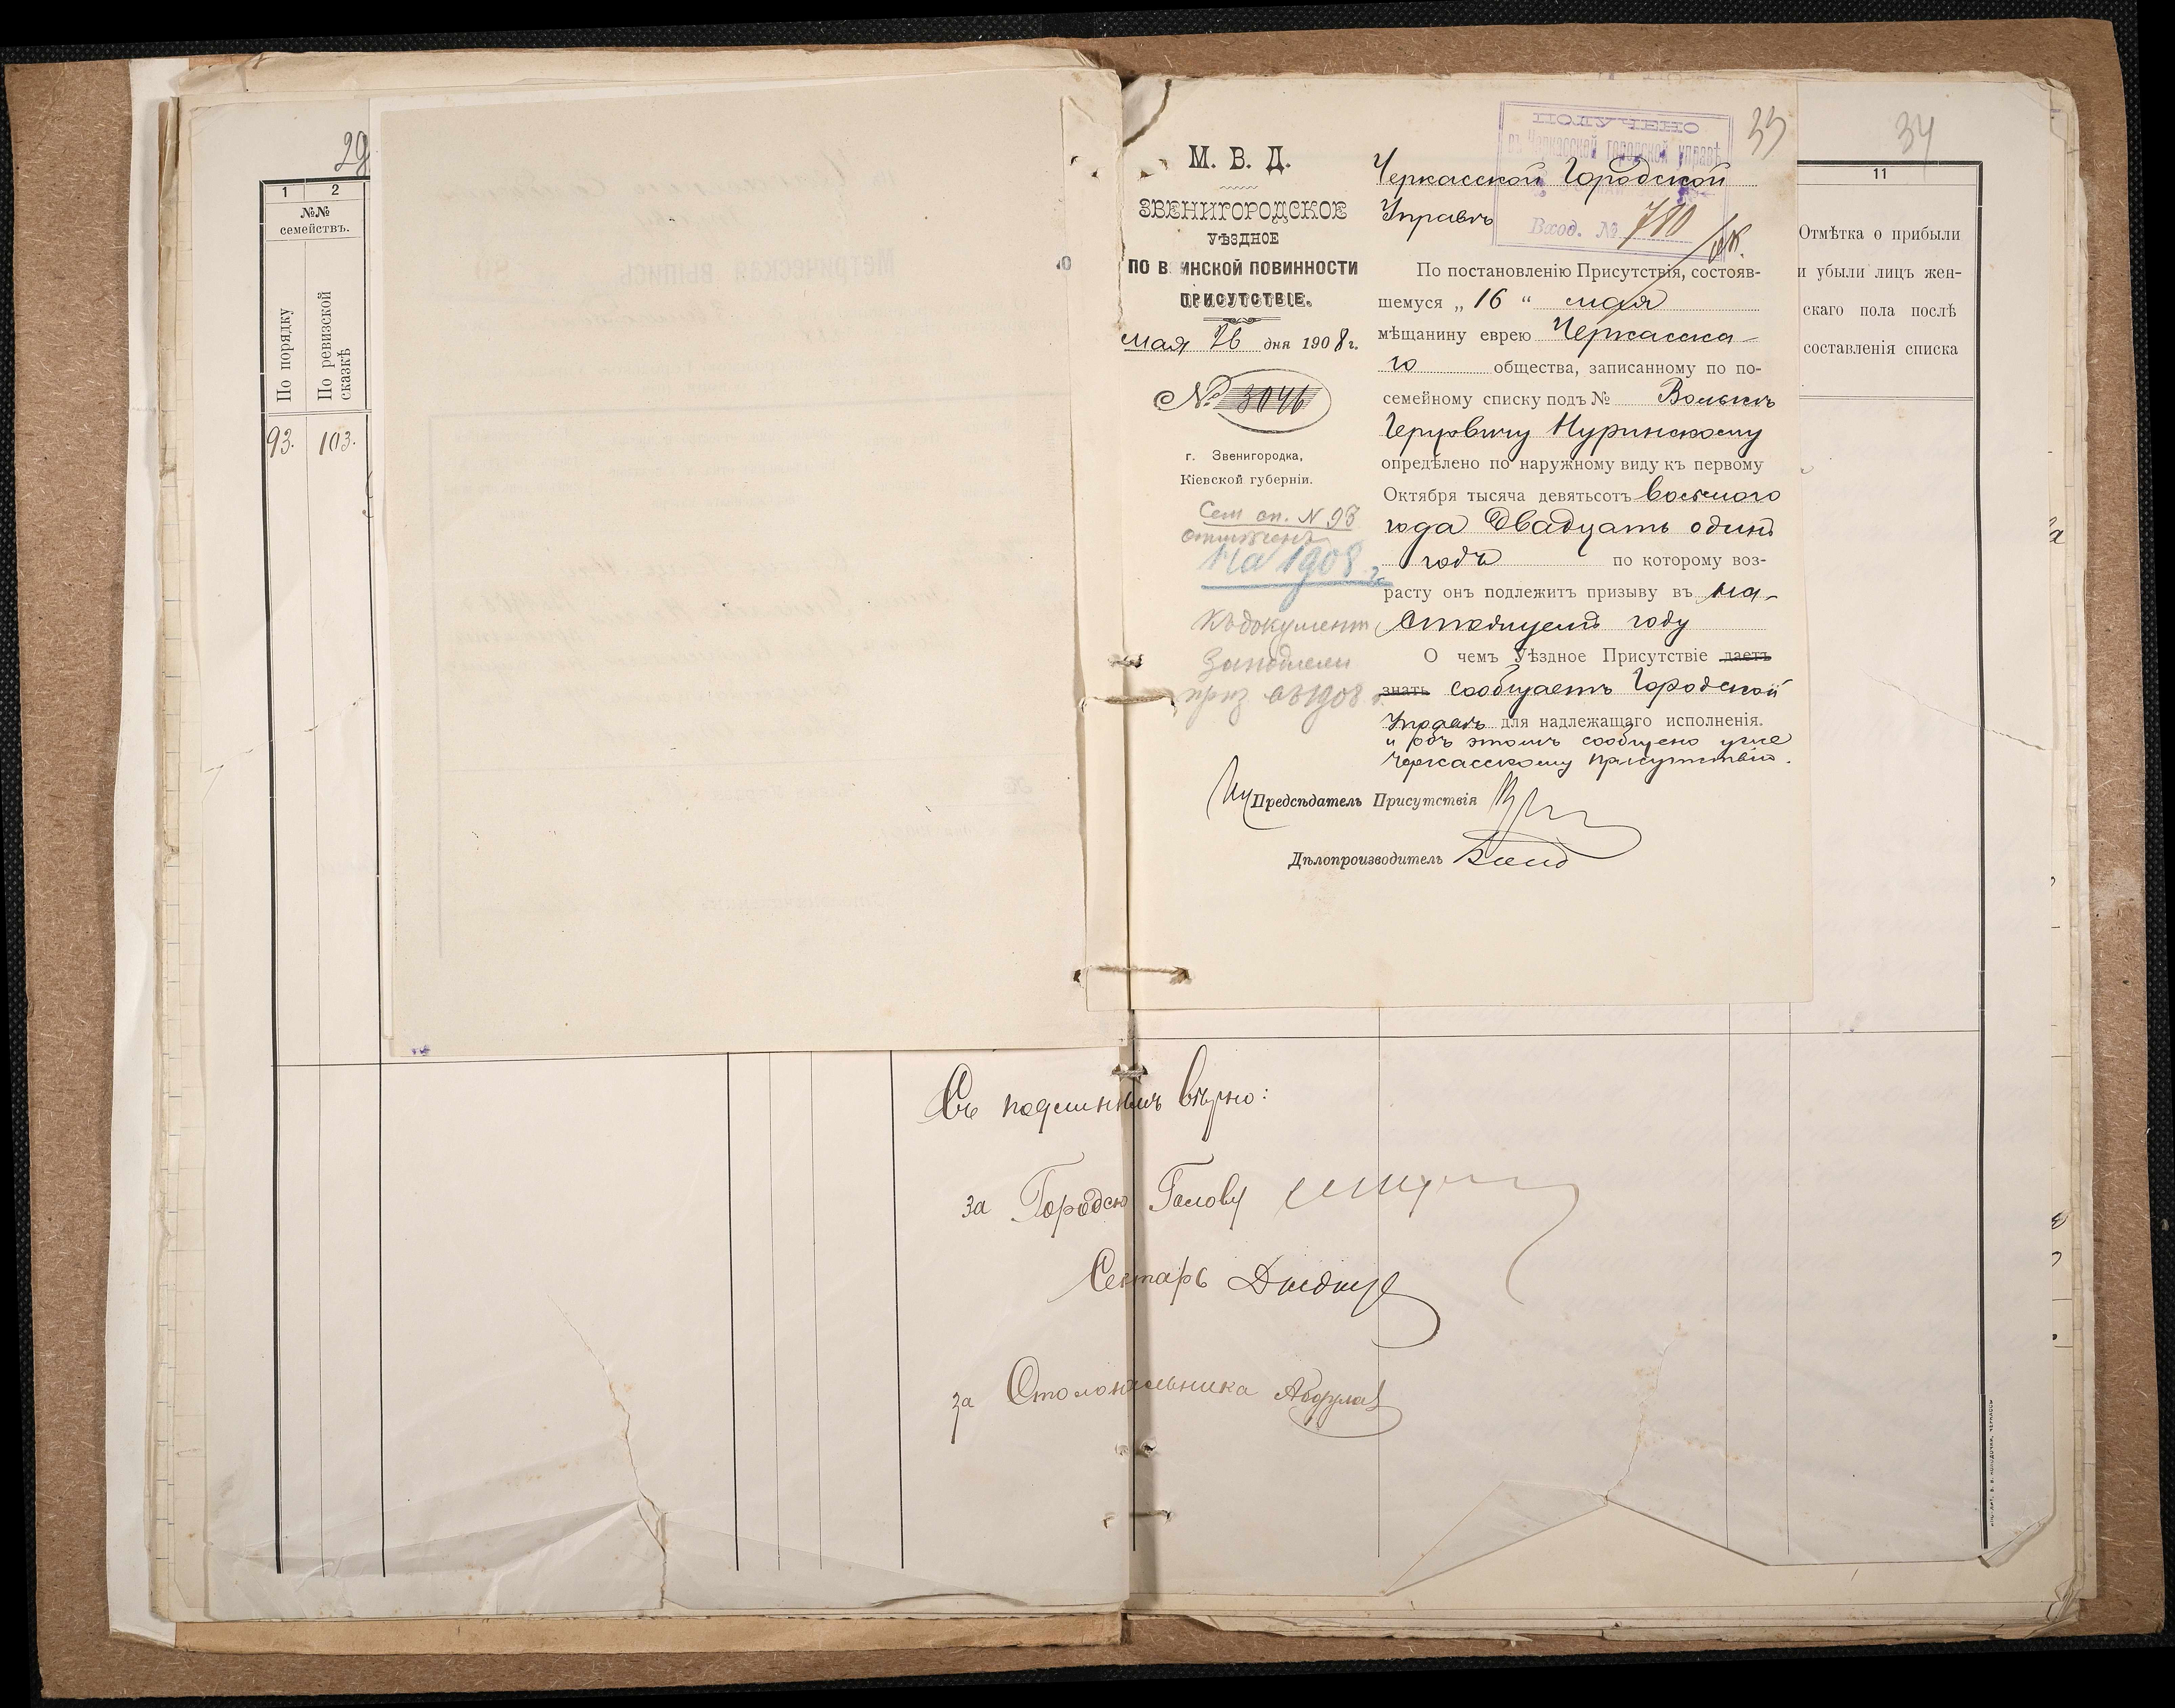 29
1 2
№№
семействъ.
По порядку
По ревизской
сказкѣ
93. 103.
10
М. В. Д.
ЗВЕНИГОРОДСКОЕ
УѢЗДНОЕ
ПО ВИНСКОЙ ПОВИННОСТИ
ПРИСУТСТВІЕ.
мая 26 дня 1908 г.
№ 3046
г. Звенигородка,
Кіевской губерніи.
Сем сп. N 93
На 1908 г
Къ документ
приз. въ 1908 г.
ПОЛУЧЕНО
въ Черкасской городской управѣ
Вход. № 780
33
Черкасской Городской
Управѣ
По постановленію Присутствія, состояв-
шемуся „ 16 “ мая
мѣщанину еврею Черкасска-
го общества, записанному по по-
семейному списку подъ № Волькѣ
Нуринскому
опредѣлено по наружному виду къ первому
Октября тысяча девятьсотъ восьмого
года Двадцать одинъ
годъ по которому воз-
расту онъ подлежитъ призыву въ на-
стоящемъ году
О чемъ Уѣздное Присутствіе даетъ
знать сообщаетъ Городской
Управѣ для надлежащаго исполненія.
и объ этомъ сообщено уже
Черкасскому Присутствію.
Предсѣдатель Присутствія
Дѣлопроизводитель
34
11
Отмѣтка о прибыли
и убыли лицъ жен-
скаго пола послѣ
составленія списка
Съ подлиннымъ вѣрно:
за Городск Голову
Сектарь
за Столоначальника